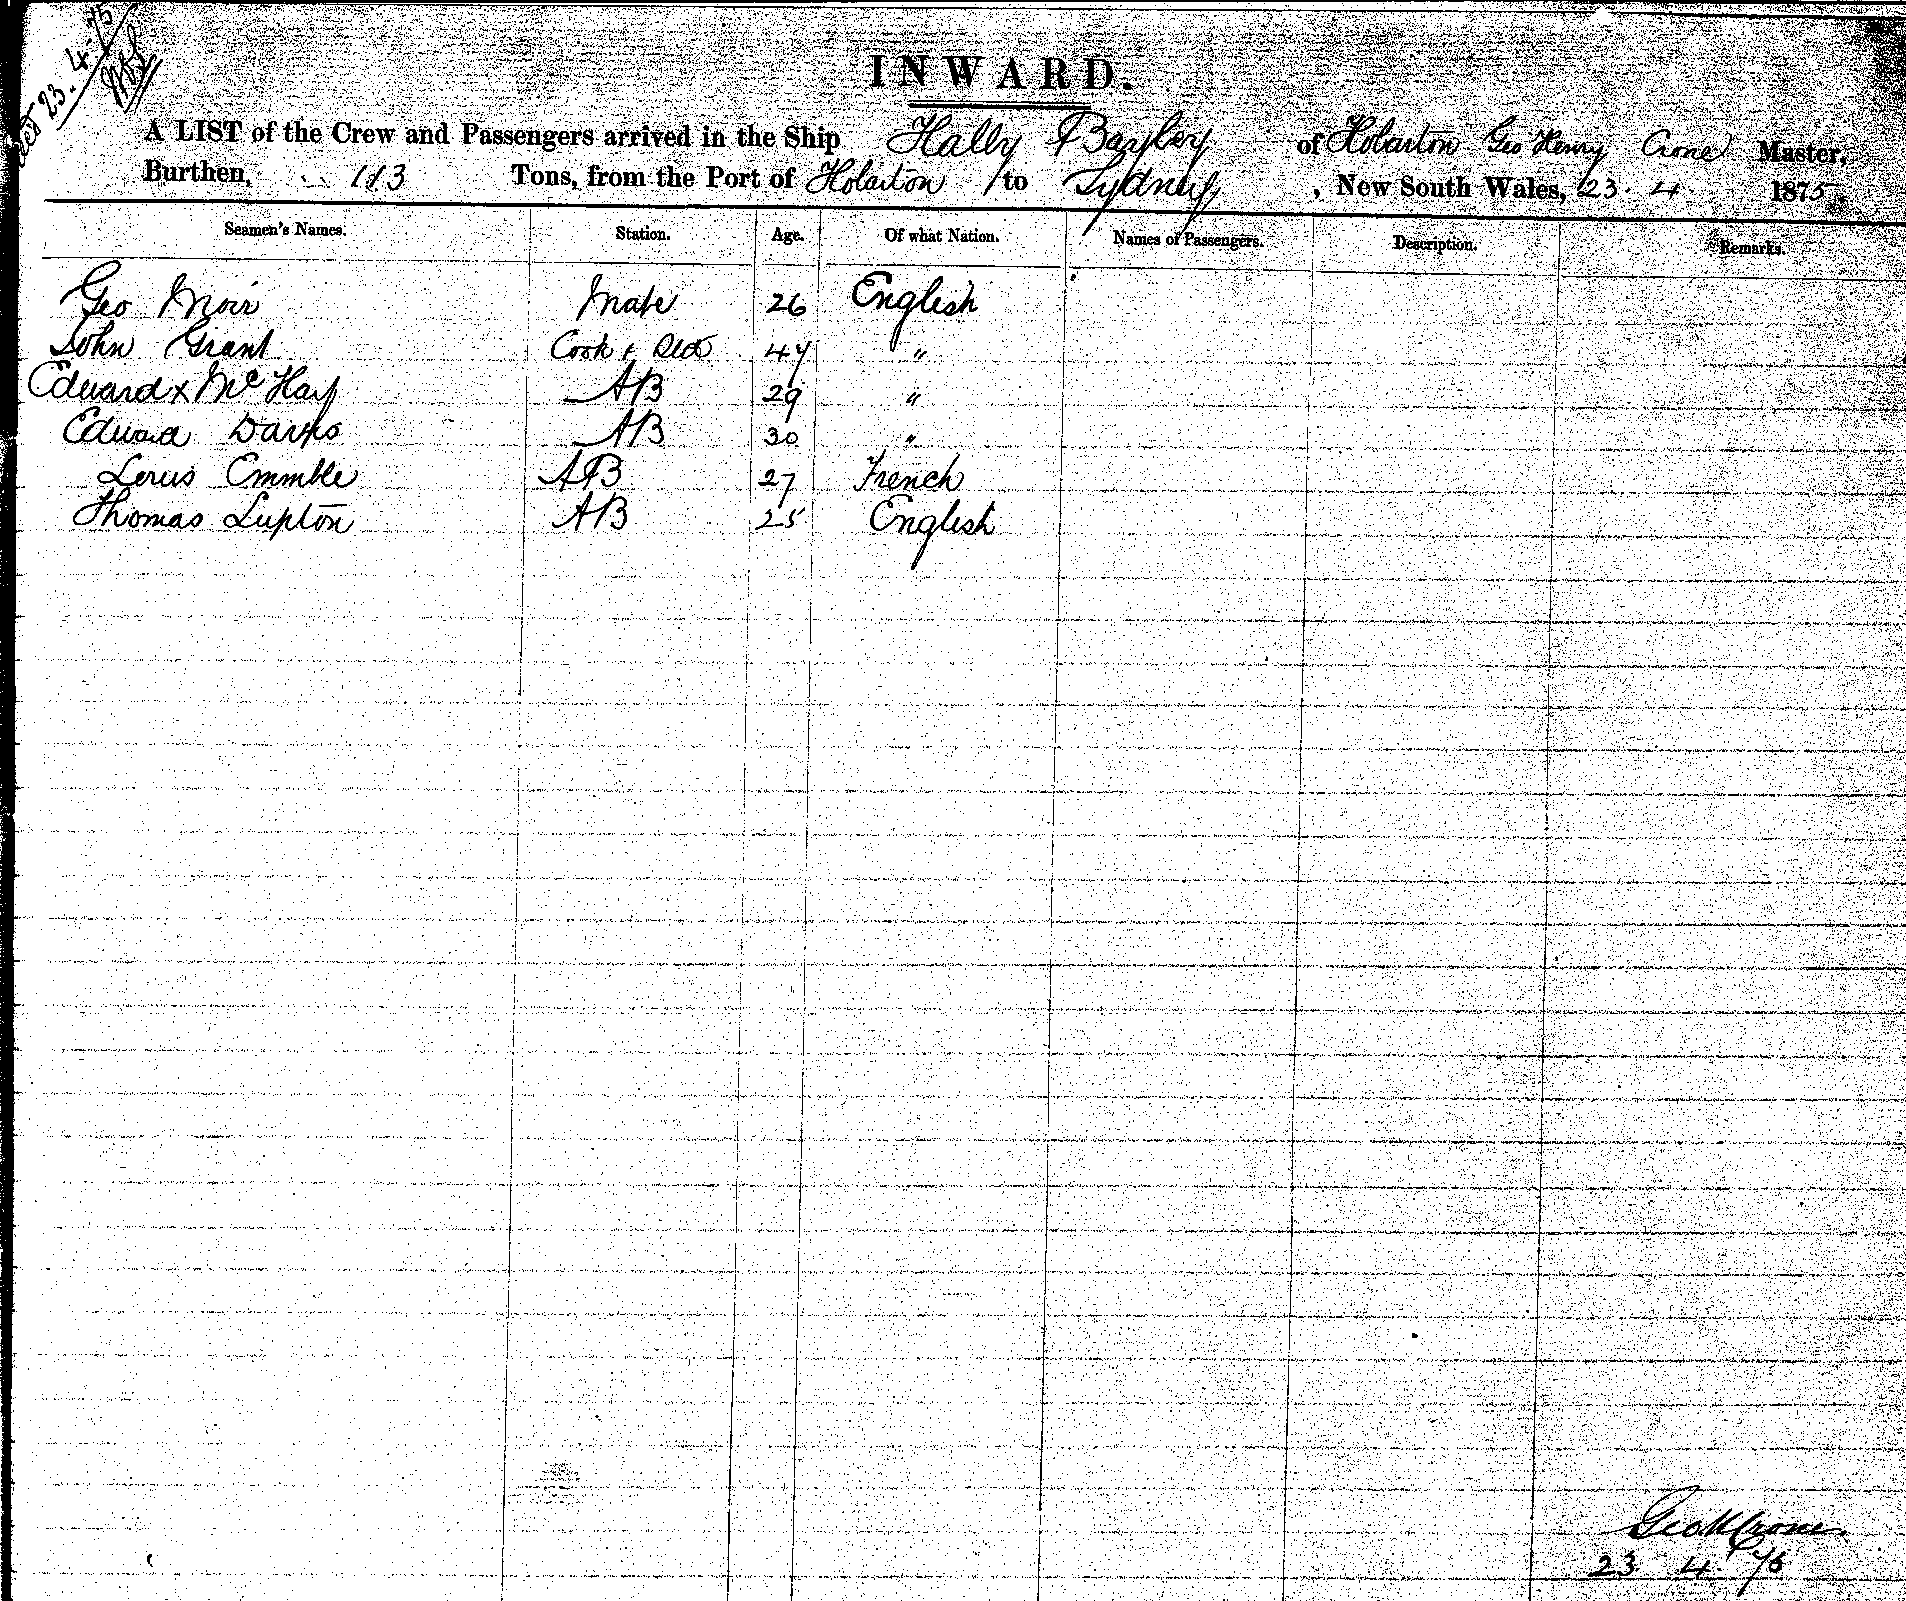 23. 4. 75
INWARD.
A LIST of the Crew and Passengers arrived in the Ship Hally Bayley of Hobarton Geo Henry Crone Master,
Burthen, 113 Tons, from the Port of Hobarton to Sydney, New South Wales, 23. 4 1875
Seamen's Names. Station. Age. Of what Nation. Names of Passengers. Description. Remarks.
Geo Moir Mate 26 English
John Grant Cook & 47 "
Edward x McHay AB 29 "
Edward Davis AB 30 "
Lerus Emmble AB 27 French
Thomas Lupton AB 25 English
Geo H Crone.
23 4. 75